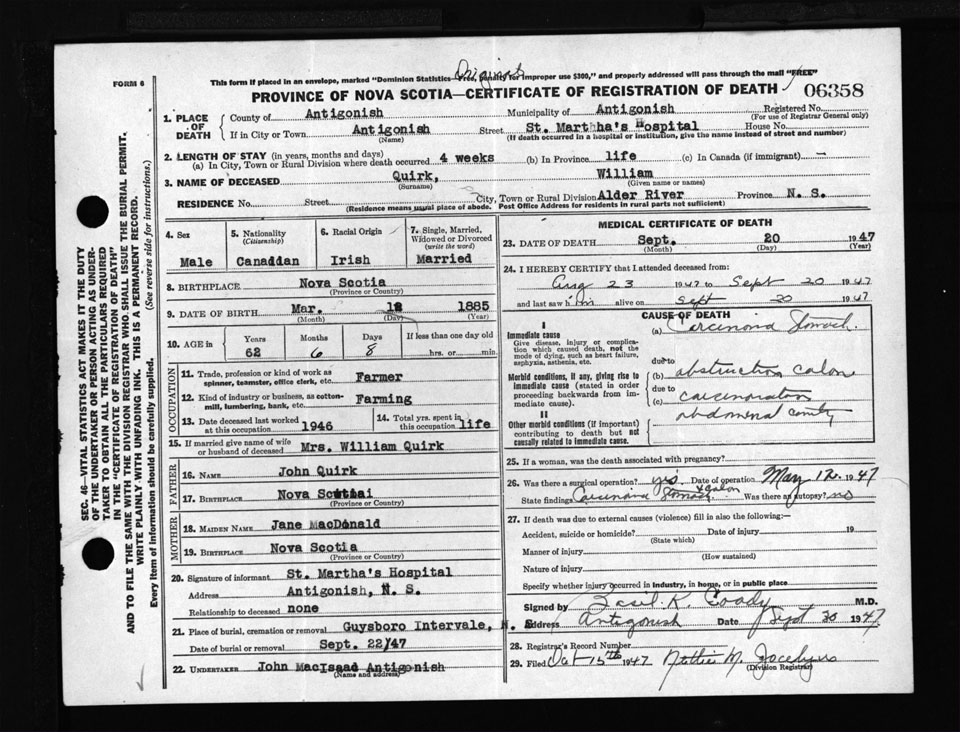 Original
FORM 6
This form if placed in an envelope, marked "Dominion Statistics— penalty for improper use $300," and properly addressed will pass through the mail "FREE"
PROVINCE OF NOVA SCOTIA—CERTIFICATE OF REGISTRATION OF DEATH
06358
1. PLACE OF DEATH
County of Antigonish Municipality of Antigonish Registered No.
(For use of Registrar General only)
If in City or Town Antigonish Street St. Marthha's Hospital House No.
(Name) (If death occurred in a hospital or institution, give the name instead of street and number)
2. LENGTH OF STAY (in years, months and days)
(a) In City, Town or Rural Division where death occurred 4 weeks (b) In Province life (c) In Canada (if immigrant) —
3. NAME OF DECEASED Quirk, William
(Surname) (Given name or names)
RESIDENCE No. Street City, Town or Rural Division Alder River Province N. S.
(Residence means usual place of abode. Post Office Address for residents in rural parts not sufficient)
4. Sex Male
5. Nationality (Citizenship) Canaddan
6. Racial Origin Irish
7. Single, Married, Widowed or Divorced (write the word) Married
8. BIRTHPLACE Nova Scotia
(Province or Country)
9. DATE OF BIRTH Mar. 12 1885
(Month) (Day) (Year)
10. AGE in Years 62 Months 6 Days 8 If less than one day old hrs. or min.
OCCUPATION
11. Trade, profession or kind of work as spinner, teamster, office clerk, etc. Farmer
12. Kind of industry or business, as cotton-mill, lumbering, bank, etc. Farming
13. Date deceased last worked at this occupation 1946
14. Total yrs. spent in this occupation life
15. If married give name of wife or husband of deceased Mrs. William Quirk
FATHER
16. NAME John Quirk
17. BIRTHPLACE Nova Scottai
(Province or Country)
MOTHER
18. MAIDEN NAME Jane MacDonald
19. BIRTHPLACE Nova Scotia
(Province or Country)
20. Signature of informant St. Martha's Hospital
Address Antigonish, N. S.
Relationship to deceased none
21. Place of burial, cremation or removal Guysboro Intervale, N. S
Date of burial or removal Sept. 22/47
22. UNDERTAKER John MacIsaac Antigonish
(Name and address)
MEDICAL CERTIFICATE OF DEATH
23. DATE OF DEATH Sept. 20 1947
(Month) (Day) (Year)
24. I HEREBY CERTIFY that I attended deceased from:
Aug 23 1947 to Sept 20 1947
and last saw him alive on Sept 20 1947
CAUSE OF DEATH
I
Immediate cause
Give disease, injury or complication which caused death, not the mode of dying, such as heart failure, asphyxia, asthenia, etc.
(a) Carcinoma Stomach
due to
Morbid conditions, if any, giving rise to immediate cause (stated in order proceeding backwards from immediate cause).
(b) obstruction colon
due to
(c) carcinomatous
abdominal cavity
II
Other morbid conditions (if important) contributing to death but not causally related to immediate cause.
25. If a woman, was the death associated with pregnancy?
26. Was there a surgical operation? yes Date of operation May 12, 1947
State findings Carcinoma Stomach & colon Was there an autopsy? no
27. If death was due to external causes (violence) fill in also the following:—
Accident, suicide or homicide? Date of injury 19
(State which)
Manner of injury
(How sustained)
Nature of injury
Specify whether injury occurred in industry, in home, or in public place
Signed by Basil K. Coady M.D.
Address Antigonish Date Sept 30 1947
28. Registrar's Record Number
29. Filed Oct 15th 1947 Nettie M.
(Division Registrar)
SEC. 46—VITAL STATISTICS ACT MAKES IT THE DUTY
OF THE UNDERTAKER OR PERSON ACTING AS UNDER-
TAKER TO OBTAIN ALL THE PARTICULARS REQUIRED
IN THE "CERTIFICATE OF REGISTRATION OF DEATH"
AND TO FILE THE SAME WITH THE DIVISION REGISTRAR WHO SHALL ISSUE THE BURIAL PERMIT.
WRITE PLAINLY WITH UNFADING INK. THIS IS A PERMANENT RECORD.
Every item of information should be carefully supplied. (See reverse side for instructions.)